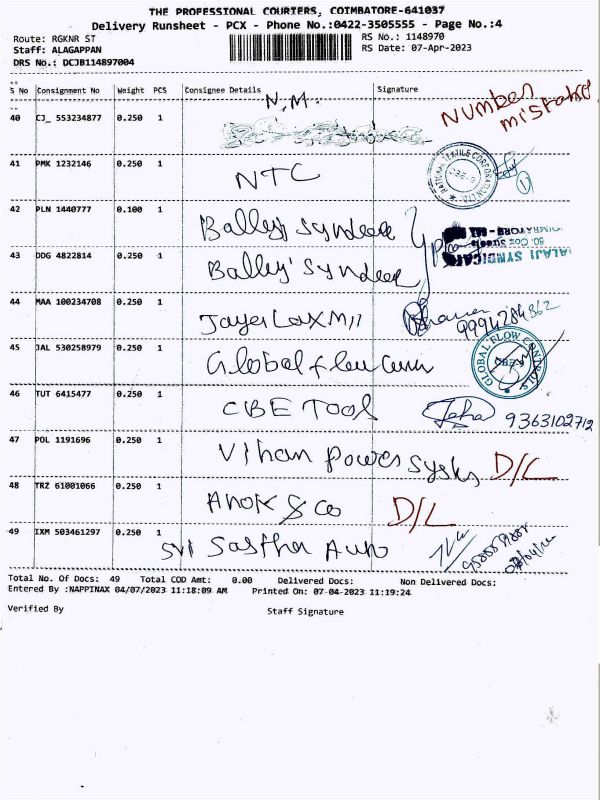 THE PROFESSIONAL COURIERS, COIMBATORE-641037
Delivery Runsheet - PCX - Phone No.:0422-3505555 - Page No.:4
Route: RGKNR ST
RS No.: 1148970
Staff: ALAGAPPAN
RS Date: 07-Apr-2023
DRS No.: DCJB114897004
S No Consignment No Weight PCS Consignee Details Signature
N.M.
40 CJ_ 553234877 0.250 1 Number mistake
41 PMK 1232146 0.250 1 NTC
42 PLN 1440777 0.100 1
43 DDG 4822814 0.250 1
BALAJI SYNDICATE
44 MAA 100234708 0.250 1
45 JAL 530258979 0.250 1 Global
GLOBAL FLOW CONTROLS
46 TUT 6415477 0.250 1 CBE Tool 9363102712
47 POL 1191696 0.250 1 Vihan Power D/L
48 TRZ 61001066 0.250 1 & Co D/L
49 IXM 503461297 0.250 1 Sri Sastha
Total No. Of Docs: 49 Total COD Amt: 0.00 Delivered Docs: Non Delivered Docs:
Entered By :NAPPINAX 04/07/2023 11:18:09 AM Printed On: 07-04-2023 11:19:24
Verified By
Staff Signature